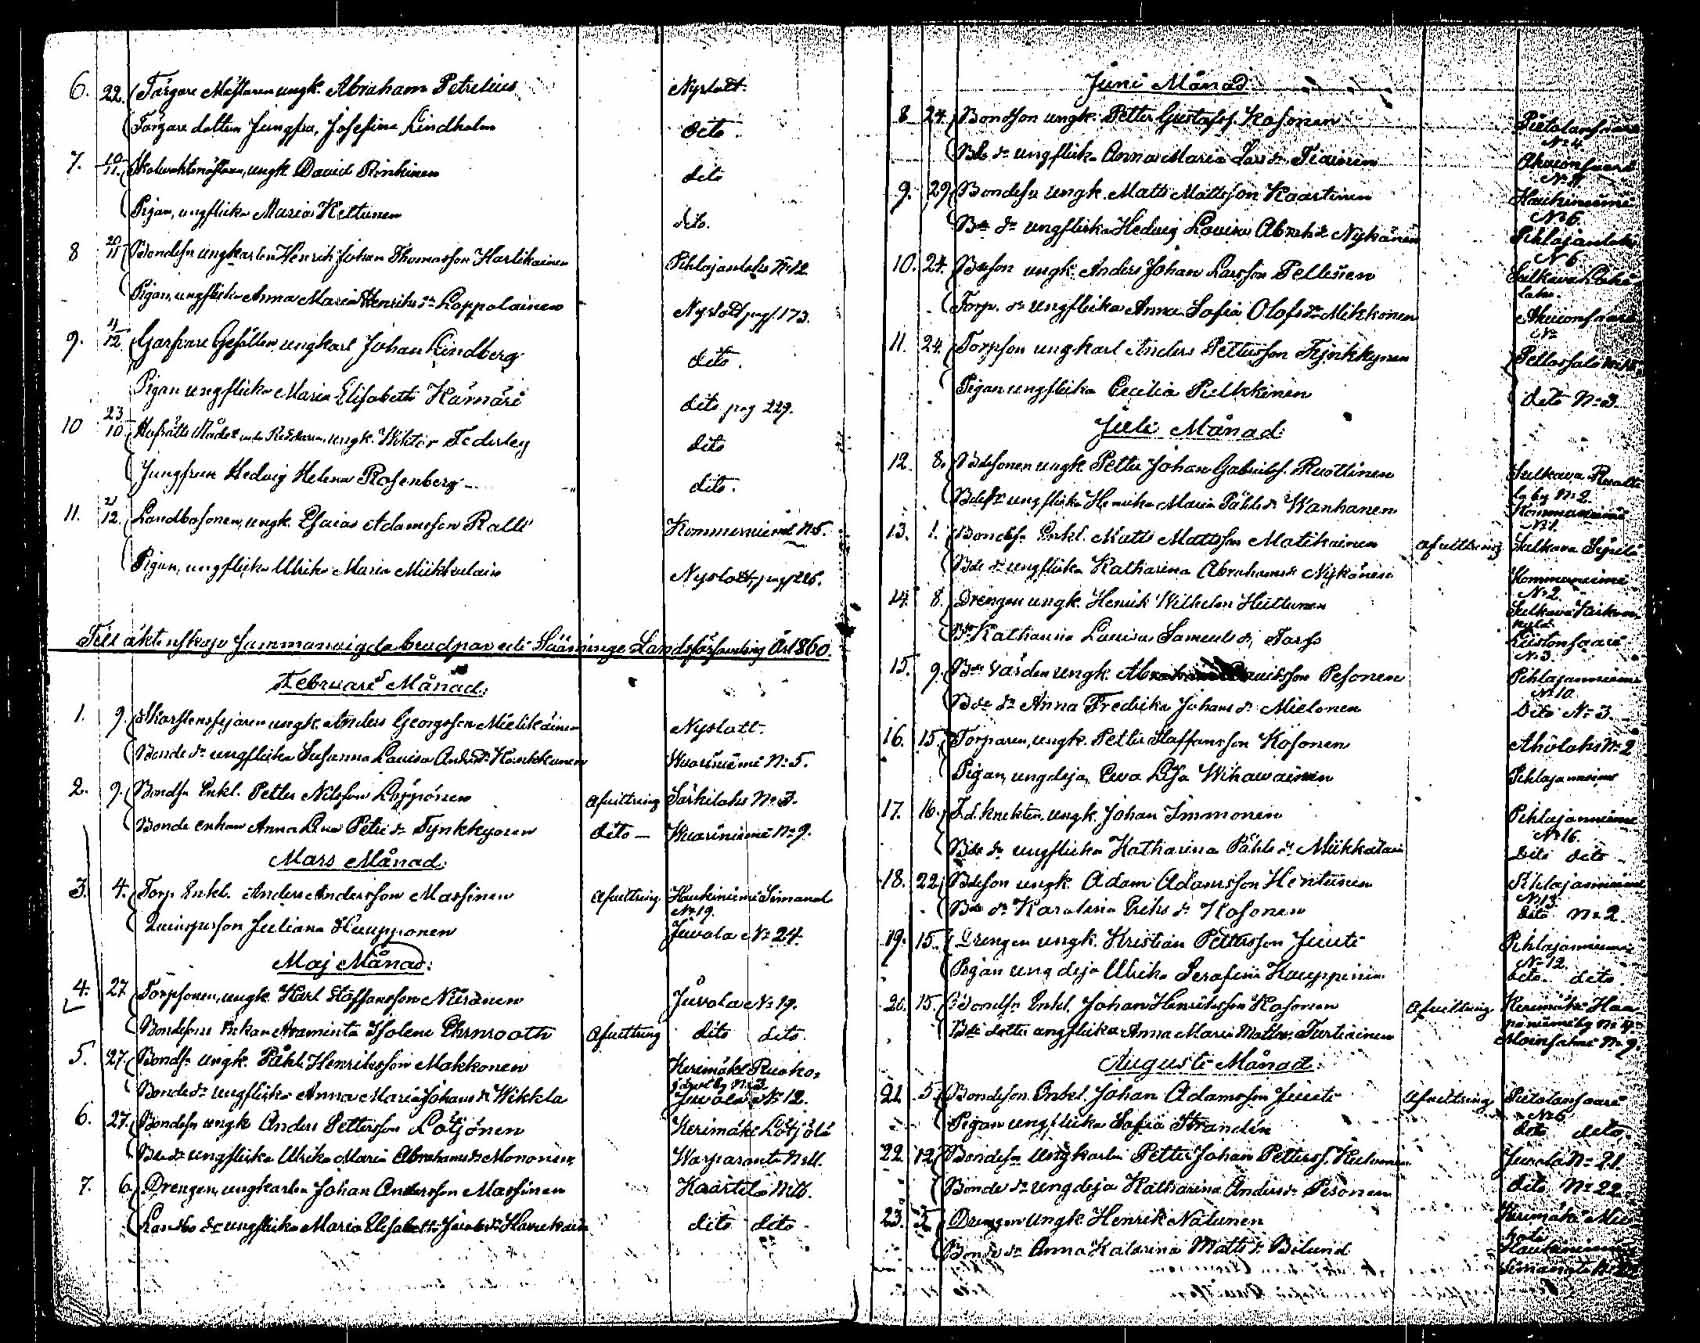 6. 22. Färgare Mästaren ungk. Abraham Petrelius Nyslott.
Färgare dottern Jungfru, Josefina Lindholm dito.
7. 10/11 ungk. David Rinkinen dito
Pigan, ungflicka Maria Kettunen dito.
8 20/11 Bondesn ungkarlen Henrik Johan Thomasson Hartikainen Pihlajanlaks No 12
Pigan, ungflicka Anna Maria Henriks dr Loppolainen Nyslott pag. 173.
9. 4/12 Garfvare Gesällen, ungkarl Johan Lindberg dito.
Pigan ungflicka Maria Elisabeth Hämäri dito pag 229.
10 23/10 Hofrätts Rådet ungk. Wiktor Federley dito
Jungfrun Hedvig Helena Rosenberg dito.
11. 2/12 Landbosonen, ungk. Esaias Adamsson Ralli Kommerniemi N5.
Pigan, ungflicka Ulrika Maria Miikkulain Nyslott, pag 226.
Till äktenskap sammanvigda brudpar uti Sääminge Landsförsamling År 1860.
Februari Månad.
1. 9. Skorstensfejaren ungk. Anders Georgsson Mielikäinen Nyslott.
Bonde dr ungflicka Susanna Lovisa And. dr Kaukkunen No 5.
2. 9. Bondsn Enkl. Petter Nilsson Löppönen afvittring Särkilaks No 3.
Bonde enkan Anna Lena Petri dr Tynkkynen dito No 9.
Mars Månad.
3. 4. Torp. Enkl. Anders Andersson Massinen Afvittring Haukiniemi Simanal
No 19.
Qvinsperson Juliana Kaupponen Juvola No 24.
Maj Månad.
4. 27 Torpsonen, ungk. Karl Staffansson Nisonen Juvola No 19.
Bondesons Enkan Araminta Isolene Ehrnrooth Afvittring dito dito.
5. 27. Bonds. ungk. Påhl Henriksson Makkonen Kerimäki Ruoko-
by No 3.
Bonde dr ungflicka Anna Maria Johans dr Wikkla Juvola No 12.
6. 27. Bondesn ungk Anders Pettersson Lötjönen Kerimäki Lötjölä
Bde dr ungflicka Ulrika Maria Abrahams dr Mononen Warparanta No 11.
7. 6 Drengen, ungkarlen Johan Andersson Massinen Kaartila No 6.
Landbo dr ungflicka Maria Elisabeth Jacobs dr dito dito
Juni Månad.
8 24. Bondson ungk. Petter Gustafss. Kosonen Pietolansaari
No 4
Bde dr ungflicka Anna Maria Lars dr Tiainen Ahvionsaari
No 11
9. 29. Bondesn ungk. Matts Mattsson Kaartinen Haukiniemi
No 6.
Bde dr ungflicka Hedvig Lovisa Abrah. dr Nykänen Pihlajanlaks
No 6
10. 24. Bdeson ungk. Anders Johan Larsson Pellinen Sulkava
Torp. dr ungflicka Anna Sofia Olofs dr Mikkonen Ahvionsaari
No
11. 24. Torpson ungkarl Anders Pettersson Tynkkynen
Pigan ungflicka Cecilia Pulkkinen dito No 3.
Juli Månad.
12. 8. Bdesonen ungk. Petter Johan Gabrielss. Ruottinen Sulkava
by No 2
Bde dr ungflicka Henrika Maria Påhls dr Wanhanen Kommerniemi
No 1.
13. 1. Bondesn Enkl. Matts Mattsson Matikainen afvittring Sulkava
Bde dr ungflicka Katharina Abrahams dr Nykänen Kommerniemi
No 2.
14. 8. Drengen ungk. Henrik Wilhelm Hiltunen Sulkava
Bde Katharina Lovisa Samuels dr Torss
No 3.
15. 9. Bde Värden ungk. Abraham Davidsson Pesonen Pihlajanniemi
No 10.
Bde dr Anna Fredrika Johans dr Mielonen Dito No 3.
16. 15. Torparen, ungk. Petter Staffansson Kosonen Ahvolaks No 2
Pigan, ungdeja, Ewa Lisa Wihavainen Pihlajaniemi
17. 16. ungk. Johan Immonen Pihlajanniemi
No 16.
Bde dr ungflicka Katharina Påhls dr Miikkulain Dito dito
18. 22. Bdeson ungk. Adam Adamsson Herttuinen Pihlajaniemi
No 13.
Bde dr Karolina Eriks dr Kosonen dito No 2.
19. 15. Drengen ungk. Kristian Pettersson Juuti Pihlajaniemi
No 12.
Pigan ungdeja Ulrika Serafina Kauppinen dito dito.
20. 15. Bondesn Enkl. Johan Henriksson Kosonen Afvittring Kerimäki Haa-
Bde dotter ungflicka Anna Maria Matts dr Turtiainen Moinsalmi No 9.
Augusti Månad.
21. 5. Bondeson Enkl. Johan Adamsson Juuti Afvittring Pietolansaari
No 6
Pigan ungflicka Sofia Strandén dito dito.
22. 12. Bondesn Ungkarlen Petter Johan Petterss. Kuhmonen Juvola No 21.
Bonde dr ungdeja Katharina Anders dr Pesonen dito No 22
23. 5. Drengen Ungk. Henrik Natunen Kerimäki
Bonde dr Anna Katarina Matts dr Bilund Haukiniemi